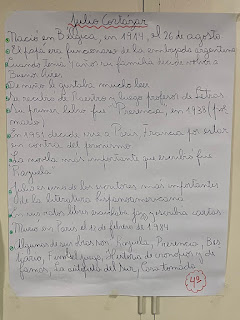 Julio Cortázar
Nació en Bélgica, en 1914, el 26 de agosto
El papá era funcionario de la embajada argentina
Cuando tenía 4 años su familia decide volver a
Buenos Aires.
De niño le gustaba mucho leer
Se recibio de Maestro y luego profesor de Letras
Su primer libro fue "Presencia, en 1938
En 1951 decide irse a París, Francia por estar
en contra del peronismo
La novela más importante que escribió fue
Rayuela
Julio es uno de los escritores más importantes
de la literatura hispanoamericana
Murió en París, el 12 de febrero de 1984
Algunas de sus obras son: Rayuela, Presencia, Bes
tiario, Final del juego, Historia de cronopios y de
famas, La autopista del Sur, Casa tomada
4º